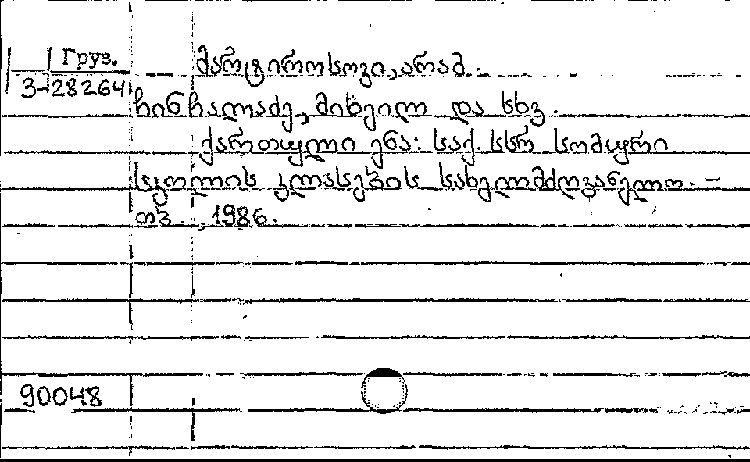 Груз.
3-28264
მარტიროსოვი, არამ.
ჩინჩალაძე, მიხეილ და სხვ.
ქართული ენა: საქ. სსრ სომხური
სკოლის კლასების სახელმძღვანელო. –
თბ., 1986.
90048